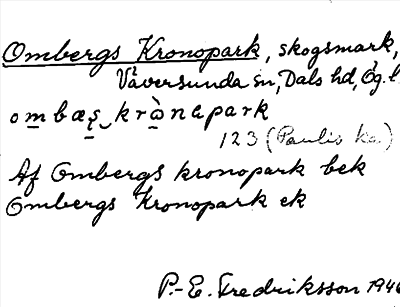 Ombergs Kronopark, skogsmark,
Väversunda sn, Dals hd, Ög. l.
ombæs krònapark
123 (Paulis ka)
Af Ombergs kronopark bek
Ombergs Kronopark ek
P.-E. Fredriksson 1946